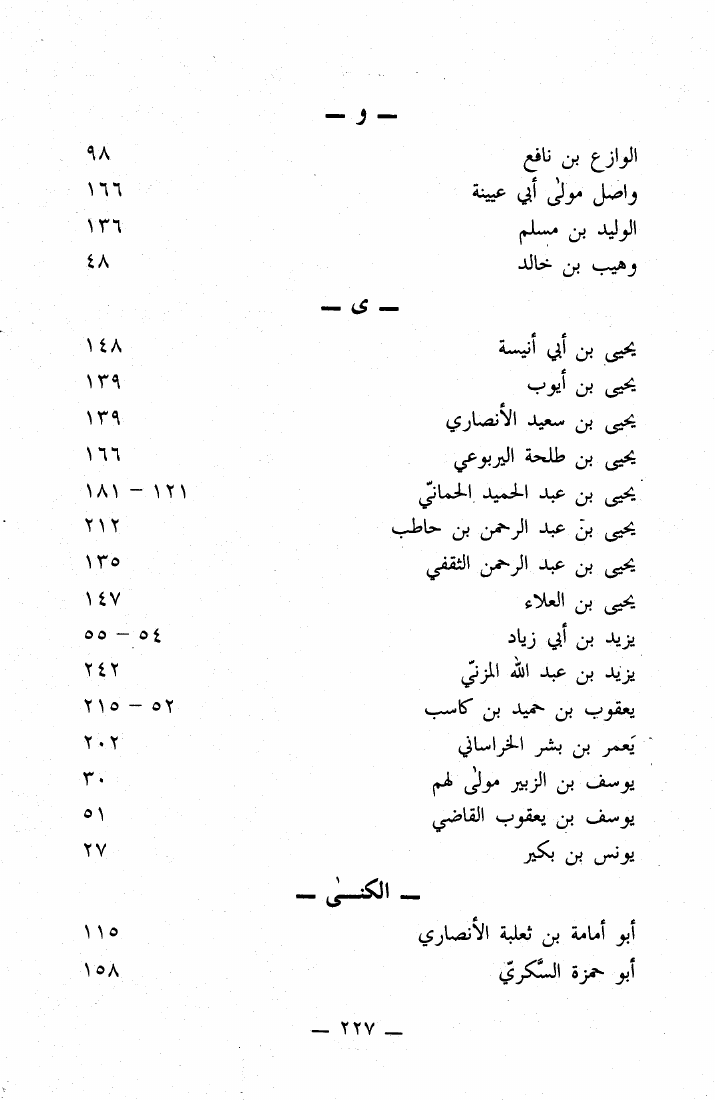 — و —
الوازع بن نافع ٩٨
واصل مولىٰ أبي عيينة ١٦٦
الوليد بن مسلم ١٣٦
وهيب بن خالد ٤٨
— ى —
يحيى بن أبي أنيسة ١٤٨
يحيى بن أيوب ١٣٩
يحيى بن سعيد الأنصاري ١٣٩
يحيى بن طلحة اليربوعي ١٦٦
يحيى بن عبد الحميد الحمانيّ ١٢١ — ١٨١
يحيى بن عبد الرحمن بن حاطب ٢١٢
يحيى بن عبد الرحمن الثقفي ١٣٥
يحيى بن العلاء ١٤٧
يزيد بن أبي زياد ٥٤ — ٥٥
يزيد بن عبد الله المزنيّ ٢٤٢
يعقوب بن حميد بن كاسب ٥٢ — ٢١٥
يَعمر بن بشر الخراساني ٢٠٢
يوسف بن الزبير مولىٰ لهم ٣٠
يوسف بن يعقوب القاضي ٥١
يونس بن بكير ٢٧
— الكنـىٰ —
أبو أمامة بن ثعلبة الأنصاري ١١٥
أبو حمزة السَّكريّ ١٥٨
— ٢٢٧ —